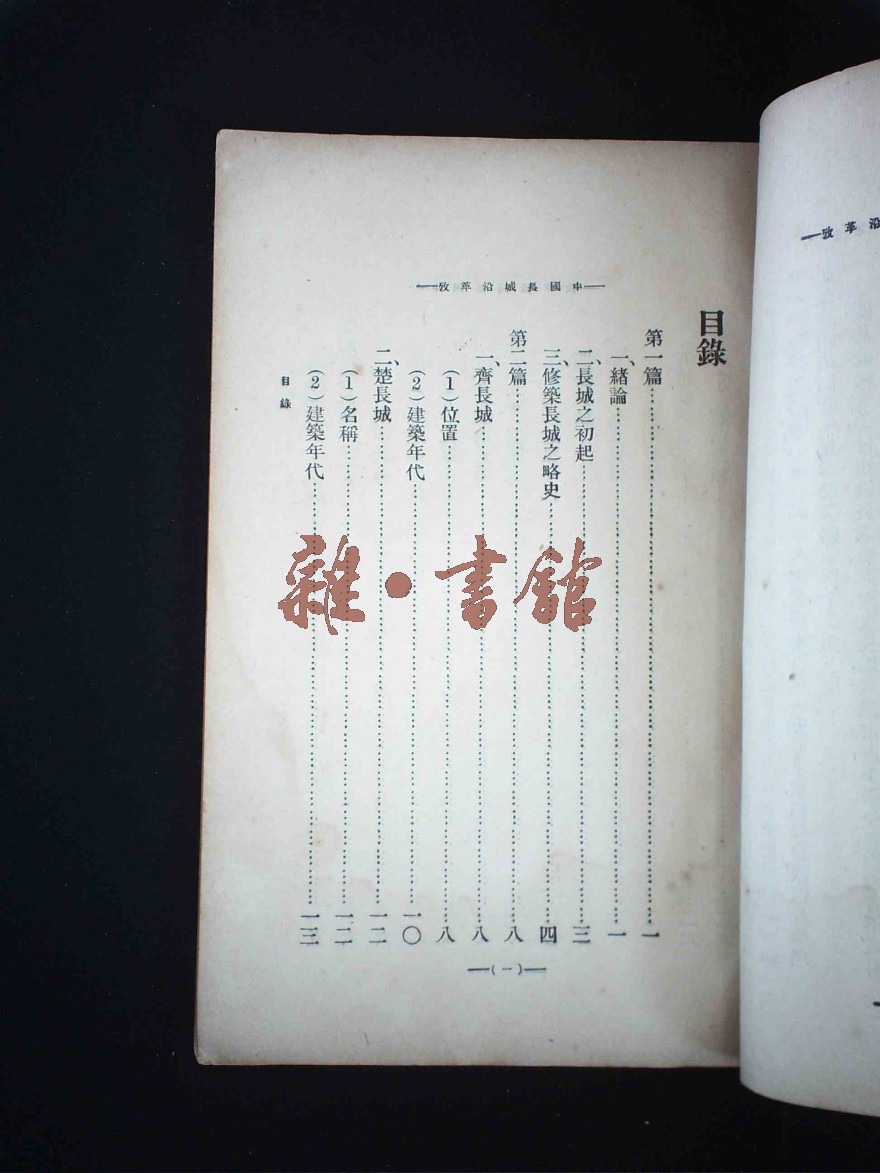 中國長城沿革攷
目錄
第一篇⋯⋯一
一、緒論⋯⋯一
二、長城之初起⋯⋯三
三、修築長城之略史⋯⋯四
第二篇⋯⋯八
一、齊長城⋯⋯八
(1)位置⋯⋯八
(2)建築年代⋯⋯一〇
二、楚長城⋯⋯一二
(1)名稱⋯⋯一二
(2)建築年代⋯⋯一三
目錄
(一)
沿革攷
雜·書館